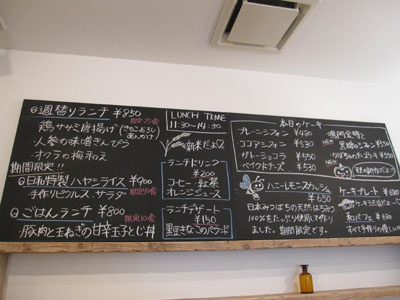 週替りランチ ¥850
限定25食
鶏ササミ唐揚げ(きのこおろしあんかけ)
人参の味噌きんぴら
オクラの梅和え
期間限定!!
日和特製ハヤシライス ¥900
限定10食
手作りピクルス、サラダ
ごはんランチ ¥800
限定10食
豚肉と玉ねぎの甘辛玉子とじ丼
LUNCH TIME
11:30~14:30
新米だよ
ランチドリンク
¥200
コーヒー 紅茶
オレンジジュース
ランチデザート
¥150
黒豆きなこのババロア
本日のケーキ
プレーンシフォン ¥480
ココアシフォン ¥530
ガトーショコラ ¥530
ベイクドチーズ ¥530
鳴門金時と
黒糖のシフォン
ハニーレモンスカッシュ
¥650
日本みつばちの天然はちみつ
100%をたっぷり使って作り
ました。期間限定です。
ケーキプレート
和パフェ
すべて手作りの優しい